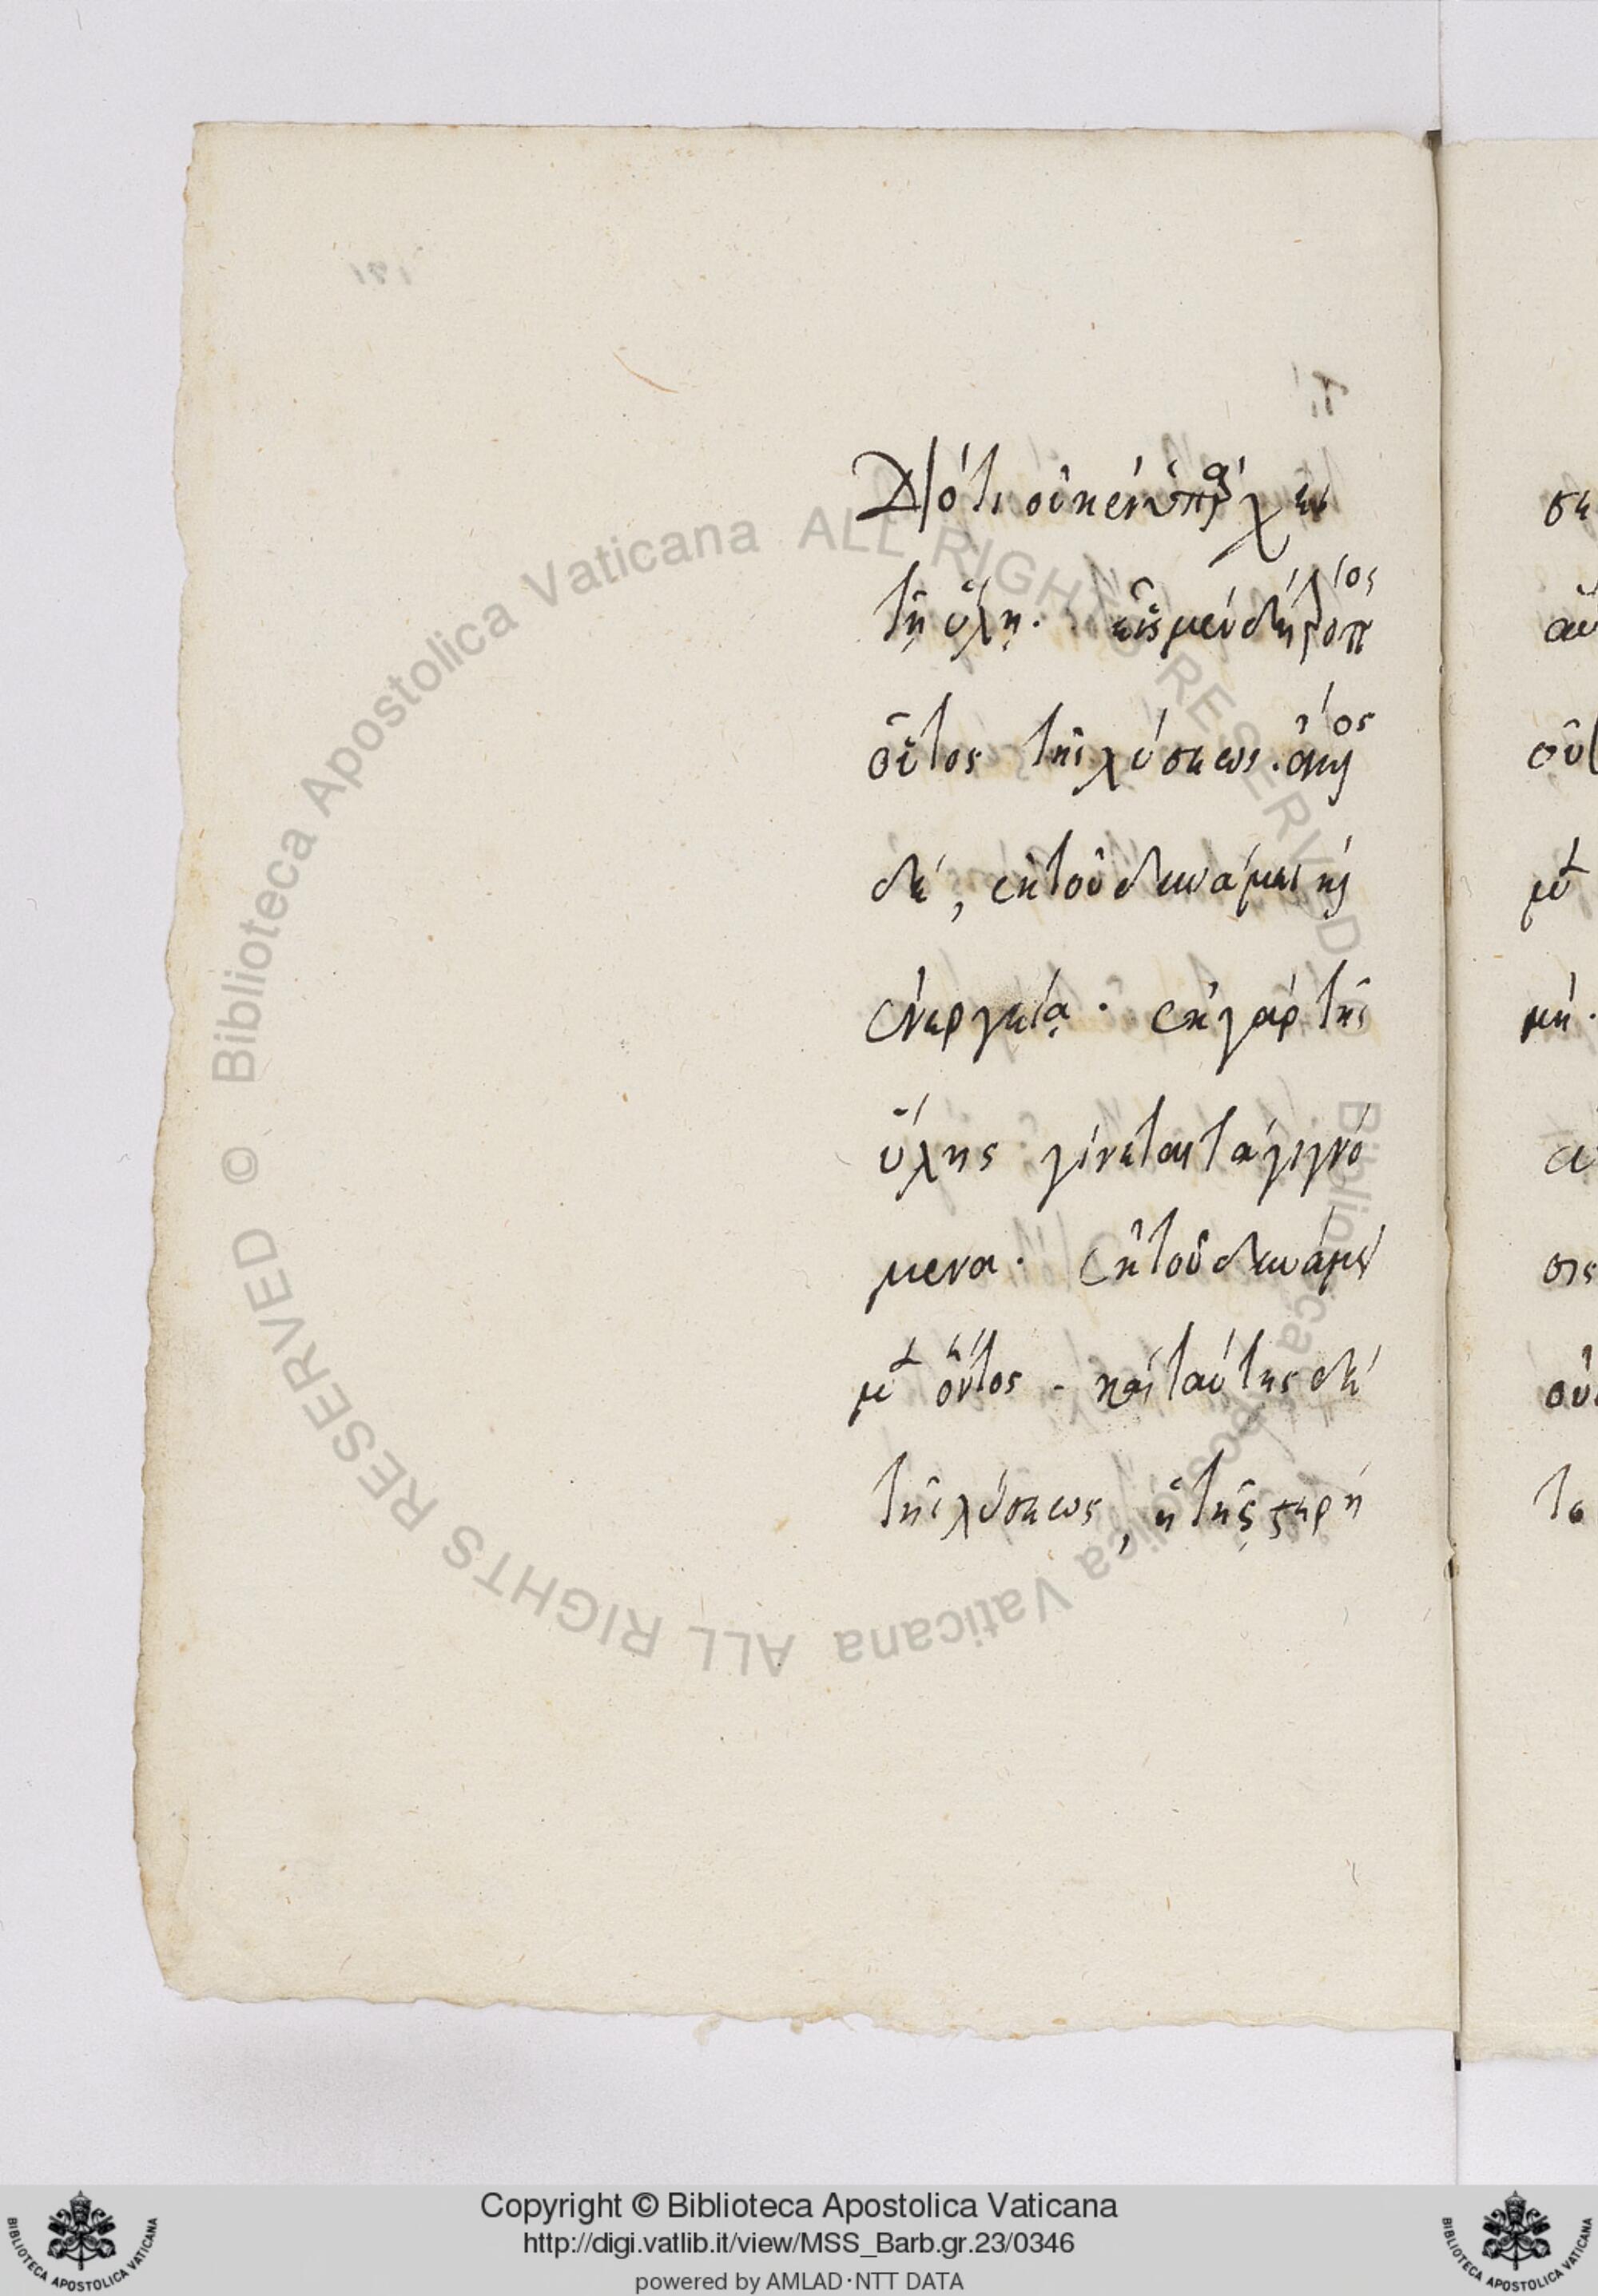 Διότι οὐκ ἐνϋπάρχει
τῇ ὕλῃ. εἷς μὲν δὴ τρόπος
οὗτος τῆς λύσεως. ἄλλος
δὲ, ἐκ τοῦ δυνάμει καὶ
ἐνεργείᾳ. ἐκ γὰρ τῆς
ὕλης γίνεται τὰ γιγνό
μενα. ἐκ τοῦ δυνάμει
μὲν ὄντος. καὶ ταύτης δὲ
τῆς λύσεως, ἢ τῆς στερή
σε
αὐ
οὐ
μὲν
μή.
σις
οὐ
το
Biblioteca Apostolica Vaticana ALL RIGHTS RESERVED ©
Biblioteca Apostolica Vaticana ALL RIGHTS RESERVED ©
Copyright © Biblioteca Apostolica Vaticana
http://digi.vatlib.it/view/MSS_Barb.gr.23/0346
powered by AMLAD·NTT DATA
BIBLIOTECA APOSTOLICA VATICANA
BIBLIOTECA APOSTOLICA VATICANA